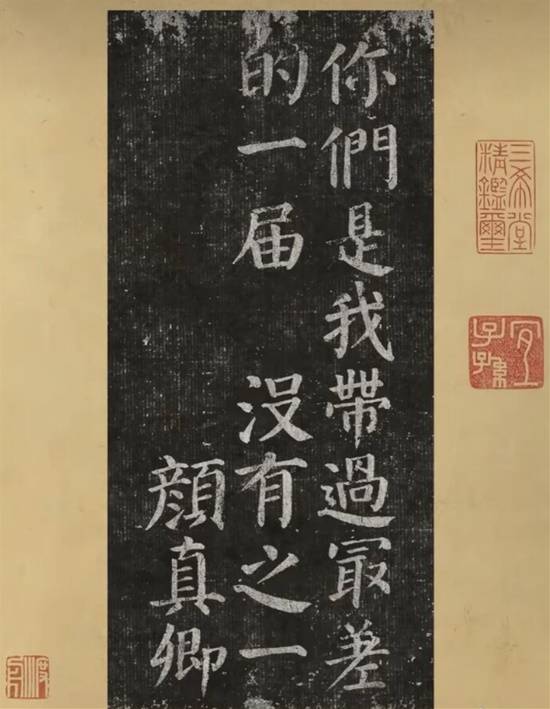 你們是我帶過冣差
的一届 没有之一
顏真卿
三希堂
精鑑璽
宜
子孫